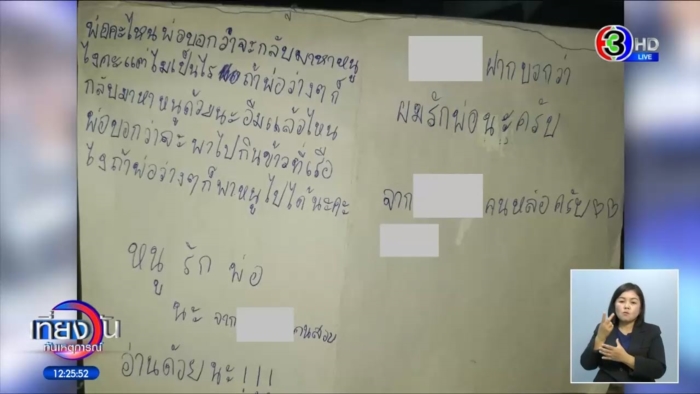 พ่อคะไหนพ่อบอกว่าจะกลับมาหาหนู
ไงคะแต่ไม่เป็นไร ถ้าพ่อว่างๆก็
กลับมาหาหนูด้วยนะอืมแล้วไหน
พ่อบอกว่าจะพาไปกินข้าวที่เรือ
ไงถ้าพ่อว่างๆก็พาหนูไปได้นะคะ
หนู รัก พ่อ
นะ จาก คนสวย
อ่านด้วยนะ!!!
ฝากบอกว่า
ผมรักพ่อนะครับ
จาก คนหล่อครับ♡♡
3 HD
LIVE
เที่ยงวัน
ทันเหตุการณ์
12:25:52